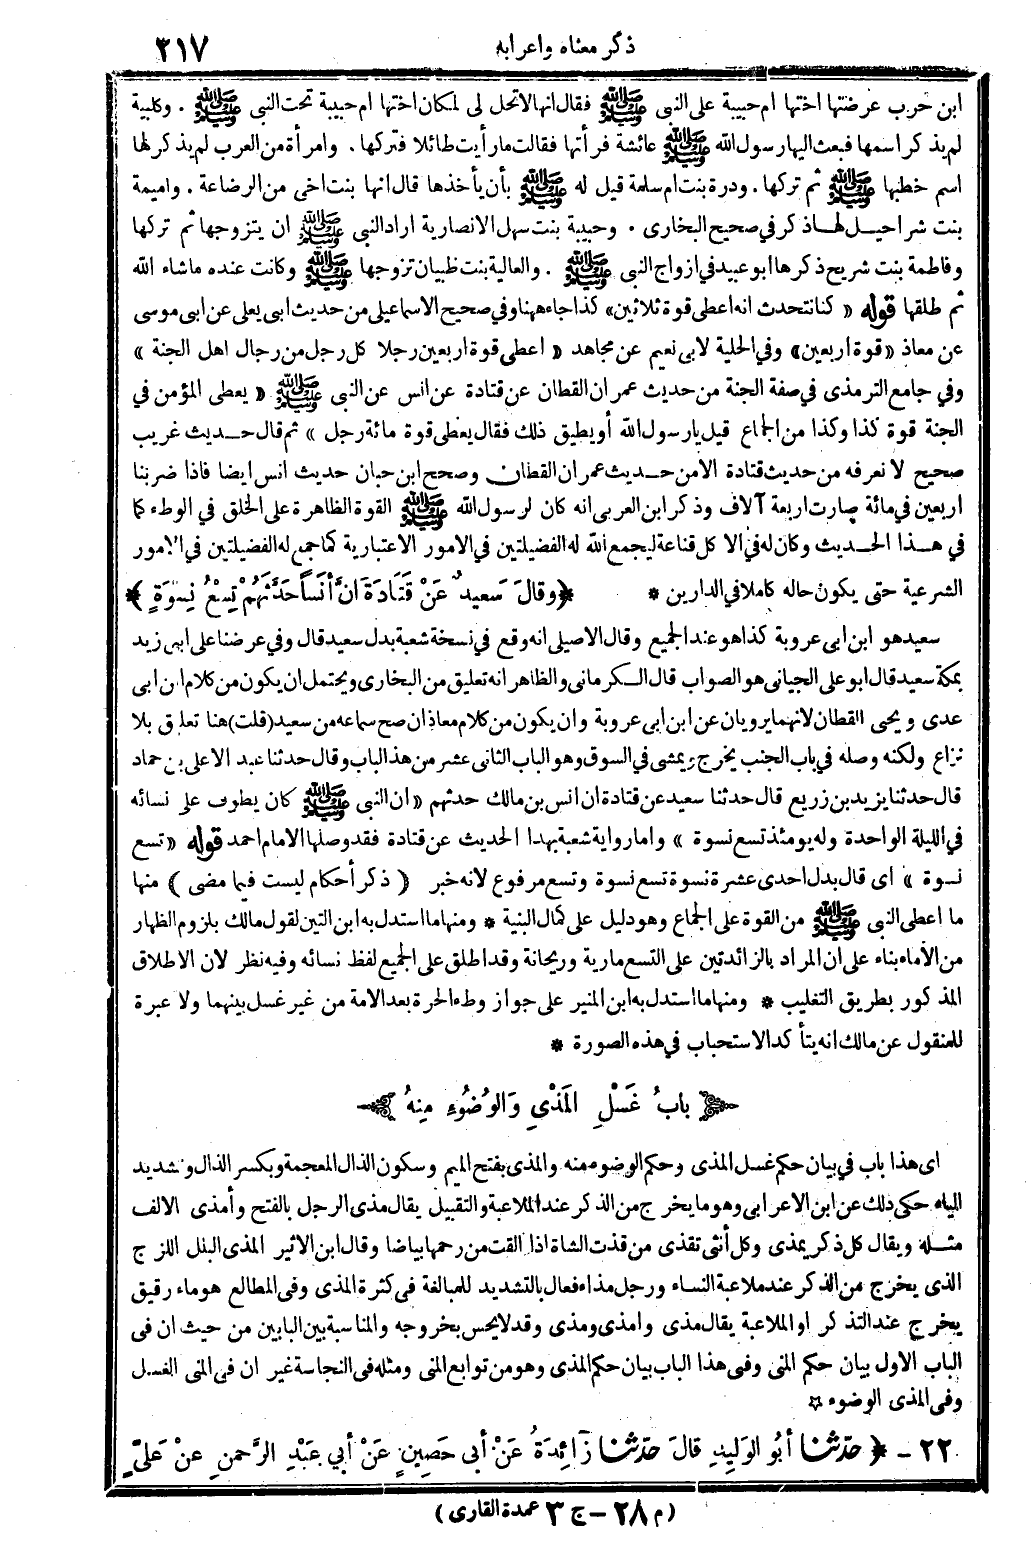 ذكر معناه واعرابه ٢١٧
ابن حرب عرضتها اختها ام حبيبة على النبي ﷺ فقال انها لا تحل لى لمكان اختها ام حبيبة تحت النبي ﷺ . وكلبية
لم يذكر اسمها فبعث اليها رسول الله ﷺ عائشة فرأتها فقالت ما رأيت طائلا فتركها . وامرأة من العرب لم يذكر لها
اسم خطبها ﷺ ثم تركها . ودرة بنت ام سلمة قيل له ﷺ بأن يأخذها قال انها بنت اخى من الرضاعة . واميمة
بنت شراحيل لها ذكر في صحيح البخارى . وحبيبة بنت سهل الانصارية اراد النبي ﷺ ان يتزوجها ثم تركها
وفاطمة بنت شريح ذكرها ابو عبيد في ازواج النبي ﷺ . والعالية بنت ظبيان تزوجها ﷺ وكانت عنده ما شاء الله
ثم طلقها قوله « كنا نتحدث انه اعطى قوة ثلاثين» كذا جاء ههنا وفي صحيح الاسماعيلى من حديث ابى يعلى عن ابى موسى
عن معاذ «قوة اربعين» وفي الحلية لابى نعيم عن مجاهد « اعطى قوة اربعين رجلا كل رجل من رجال اهل الجنة »
وفي جامع الترمذى في صفة الجنة من حديث عمران القطان عن قتادة عن انس عن النبى ﷺ « يعطى المؤمن في
الجنة قوة كذا وكذا من الجماع قيل يا رسول الله أو يطيق ذلك فقال يعطى قوة مائة رجل » ثم قال حديث غريب
صحيح لا نعرفه من حديث قتادة الا من حديث عمران القطان وصحح ابن حبان حديث انس ايضا فاذا ضربنا
اربعين في مائة صارت اربعة آلاف وذكر ابن العربى انه كان لرسول الله ﷺ القوة الظاهرة على الخلق في الوطء كما
في هذا الحديث وكان له في الاكل قناعة ليجمع الله له الفضيلتين في الامور الاعتبارية كما جمع له الفضيلتين في الامور
الشرعية حتى يكون حاله كاملا في الدارين * ﴿وقالَ سَعيدٌ عَنْ قَتَادَةَ انَّ أنَساً حَدَّثَهُمْ تِسْعُ نِسْوَةٍ ﴾
سعيد هو ابن ابى عروبة كذا هو عند الجميع وقال الاصيلى انه وقع في نسخة شعبة بدل سعيد قال وفي عرضنا على ابى زيد
بمكة سعيد قال ابو على الجيانى هو الصواب قال الكرمانى والظاهر انه تعليق من البخارى ويحتمل ان يكون من كلام ابن ابى
عدى ويحيى القطان لانهما يرويان عن ابن ابى عروبة وان يكون من كلام معاذ ان صح سماعه من سعيد (قلت) هنا تعليق بلا
نزاع ولكنه وصله في باب الجنب يخرج ويمشى في السوق وهو الباب الثانى عشر من هذا الباب وقال حدثنا عبد الاعلى بن حماد
قال حدثنا يزيد بن زريع قال حدثنا سعيد عن قتادة ان انس بن مالك حدثهم « ان النبى ﷺ كان يطوف على نسائه
في الليلة الواحدة وله يومئذ تسع نسوة » واما رواية شعبة بهذا الحديث عن قتادة فقد وصلها الامام احمد قوله « تسع
نسوة » اى قال بدل احدى عشرة نسوة تسع نسوة وتسع مرفوع لانه خبر ( ذكر أحكام ليست فيما مضى ) منها
ما اعطى النبى ﷺ من القوة على الجماع وهو دليل على كمال البنية * ومنها ما استدل به ابن التين لقول مالك بلزوم الظهار
من الأماء بناء على ان المراد بالزائدتين على التسع مارية وريحانة وقد اطلق على الجميع لفظ نسائه وفيه نظر لان الاطلاق
المذكور بطريق التغليب * ومنها ما استدل به ابن المنير على جواز وطء الحرة بعد الامة من غير غسل بينهما ولا عبرة
للمنقول عن مالك انه يتأكد الاستحباب في هذه الصورة *
﴿ بابُ غَسْلِ المَذْيِ وَالوُضُوءِ مِنهُ ﴾
اى هذا باب في بيان حكم غسل المذى وحكم الوضوء منه والمذى بفتح الميم وسكون الذال المعجمة وبكسر الذال وتشديد
الياء حكى ذلك عن ابن الاعرابى وهو ما يخرج من الذكر عند الملاعبة والتقبيل يقال مذى الرجل بالفتح وأمذى الالف
مثله ويقال كل ذكر يمذى وكل أنثى تقذى من قذت الشاة اذا القت من رحمها بياضا وقال ابن الاثير المذى البلل اللزج
الذى يخرج من الذكر عند ملاعبة النساء ورجل مذاء فعال بالتشديد للمبالغة فى كثرة المذى وفى المطالع هو ماء رقيق
يخرج عند التذكر او الملاعبة يقال مذى وامذى ومذى وقد لا يحس بخروجه والمناسبة بين البابين من حيث ان فى
الباب الاول بيان حكم المنى وفى هذا الباب بيان حكم المذى وهو من توابع المنى ومثله فى النجاسة غير ان فى المنى الغسل
وفى المذى الوضوء ☆
٢٢ - ﴿ حدّثنا أبُو الوَلِيدِ قالَ حدّثنا زَائِدَةُ عَنْ أبى حَصِينٍ عَنْ أبي عَبْدِ الرَّحمنِ عنْ عَلىٍّ
( م ٢٨ - ج ٣ عمدة القارى )